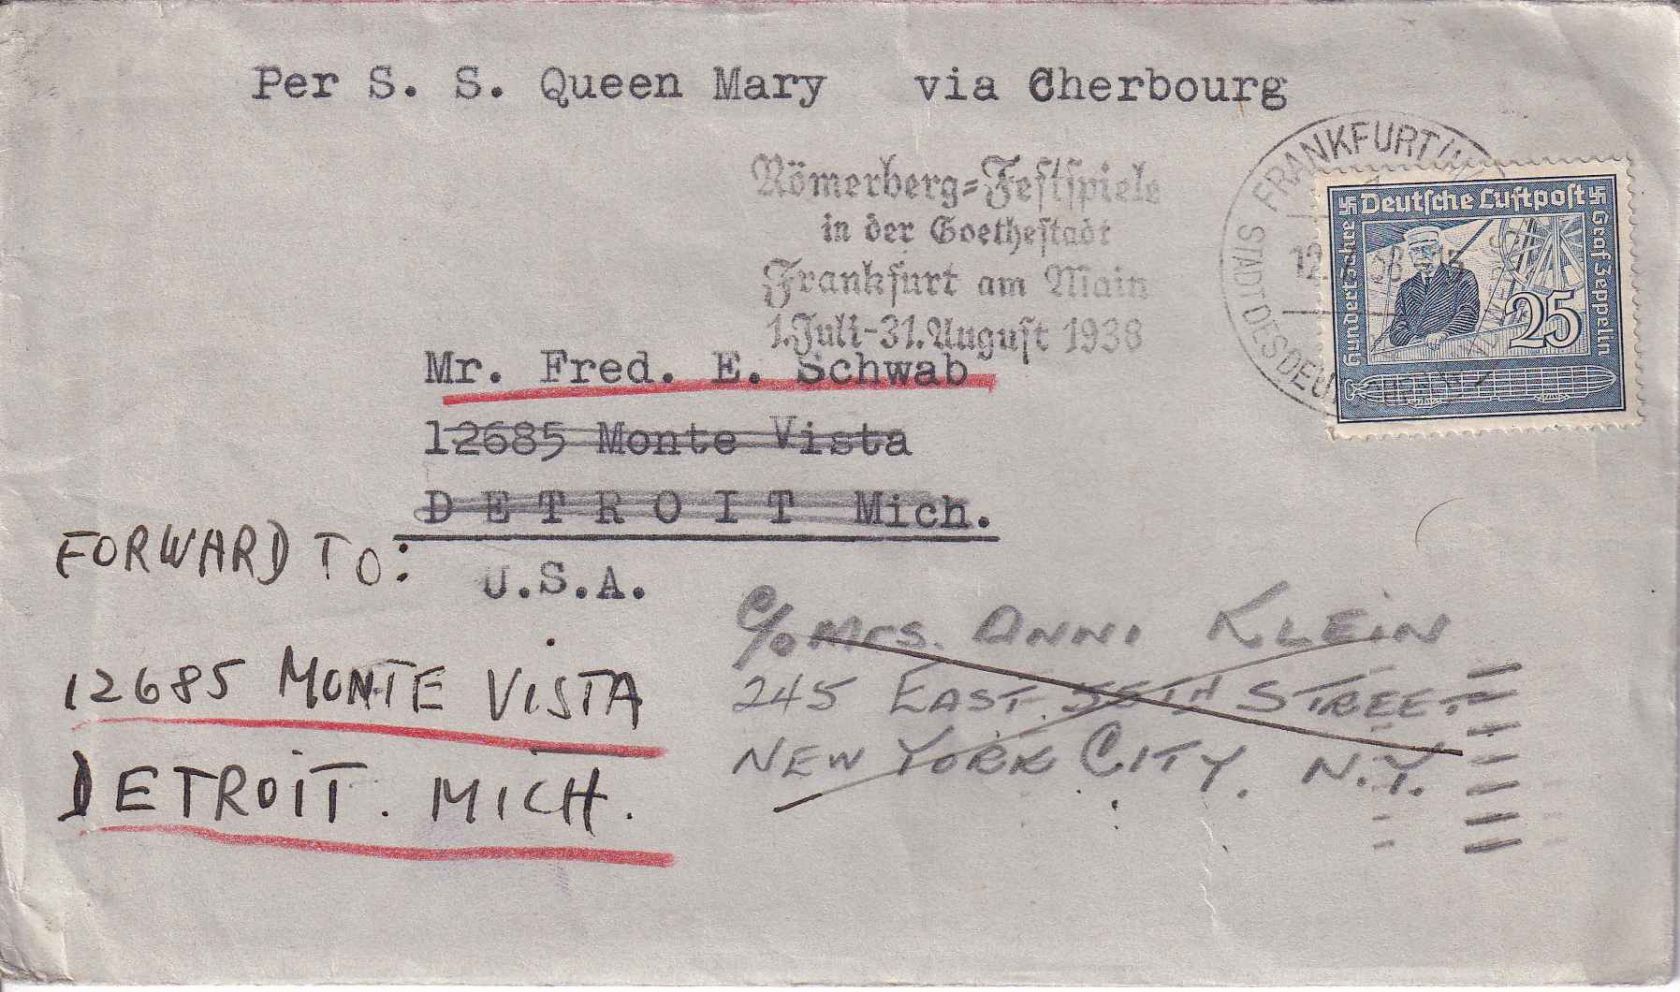 Per S. S. Queen Mary via Cherbourg
Römerberg-Festspiele
in der Goethestadt
Frankfurt am Main
1. Juli-31. August 1938
FRANKFURT
STADT DES DEU
12
Deutsche Luftpost
Hundert Jahre
Graf Zeppelin
25
Mr. Fred. E. Schwab
12685 Monte Vista
DETROIT Mich.
U.S.A.
FORWARD TO:
12685 MONTE VISTA
DETROIT. MICH.
C/o Mrs. ANNI KLEIN
245 EAST 55TH STREET
NEW YORK CITY, N.Y.